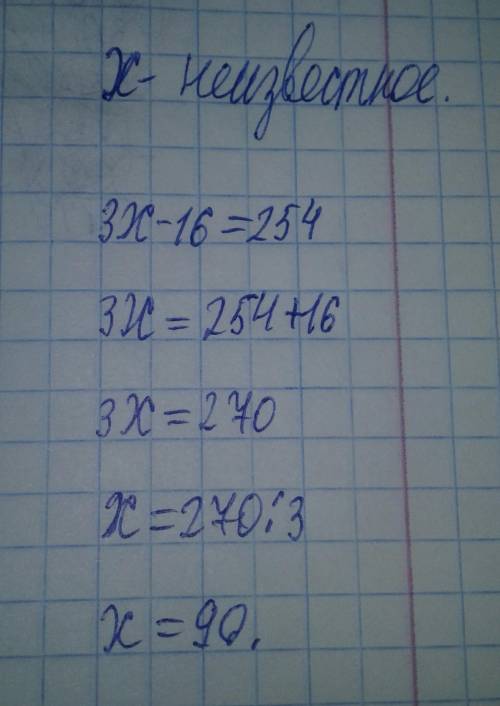 x- неизвестное.
3x-16=254
3x=254+16
3x=270
x=270:3
x=90.